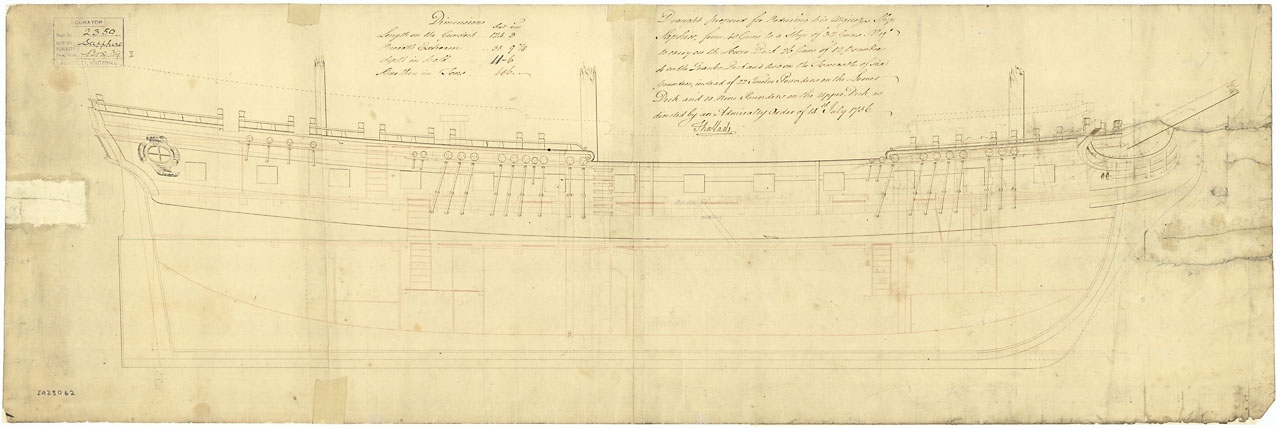 CURATOR
2350
Sapphire
Box 39
Dimensions
Feet In
Length on the Gundeck 124.3
Breadth Extream 38.9 7/8
Depth in hold 11-6
Burthen in Tons
Draught proposed for Reducing his Majesty's Ship
Saphire, from 40 Guns to a Ship of 32 Guns. Viz.
to carry on the Lower Deck 26 Guns of 12 Pounders
4 on the Quarter Deck and two on the Forecastle of six
pounders, instead of 22 Twelve Pounders on the Lower
Deck and 10 Nine Pounders on the Upper Deck, as
directed by an Admiralty Order of 14th July 1756.
ThoSlade
ZAZ3062